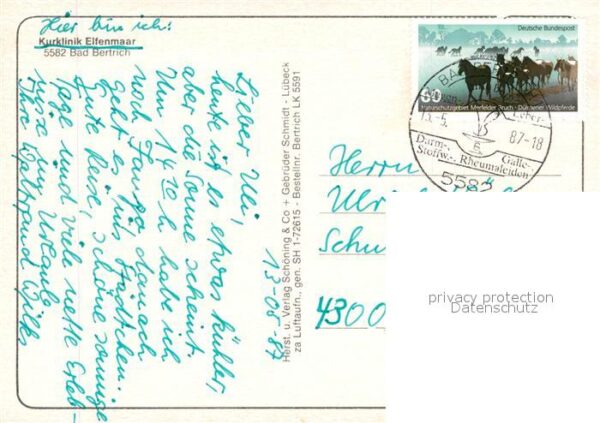 Hier bin ich:
Kurklinik Elfenmaar
5582 Bad Bertrich
13-05-87
Lieber Uli,
heute ist es etwas kühler,
aber die Sonne scheint.
Um 14 h habe ich
noch Tango danach
geht es ins Städtchen.
Gute Reise, schöne sonnige
Tage und viele nette Erleb-
nisse im Urlaub
Ihre Waltraud
Herst. u. Verlag Schöning & Co + Gebrüder Schmidt - Lübeck
za Luftaufn., gen. SH 1-72615 - Bestellnr. Bertrich LK 5591
Deutsche Bundespost
80
Naturschutzgebiet Merfelder Bruch · Dülmener Wildpferde
BA
13.-5.
87-18
Leber-
Darm-,
Galle-,
Stoffw.-, Rheumaleiden
5582
Herrn
Ulr
Schu
4300
privacy protection
Datenschutz